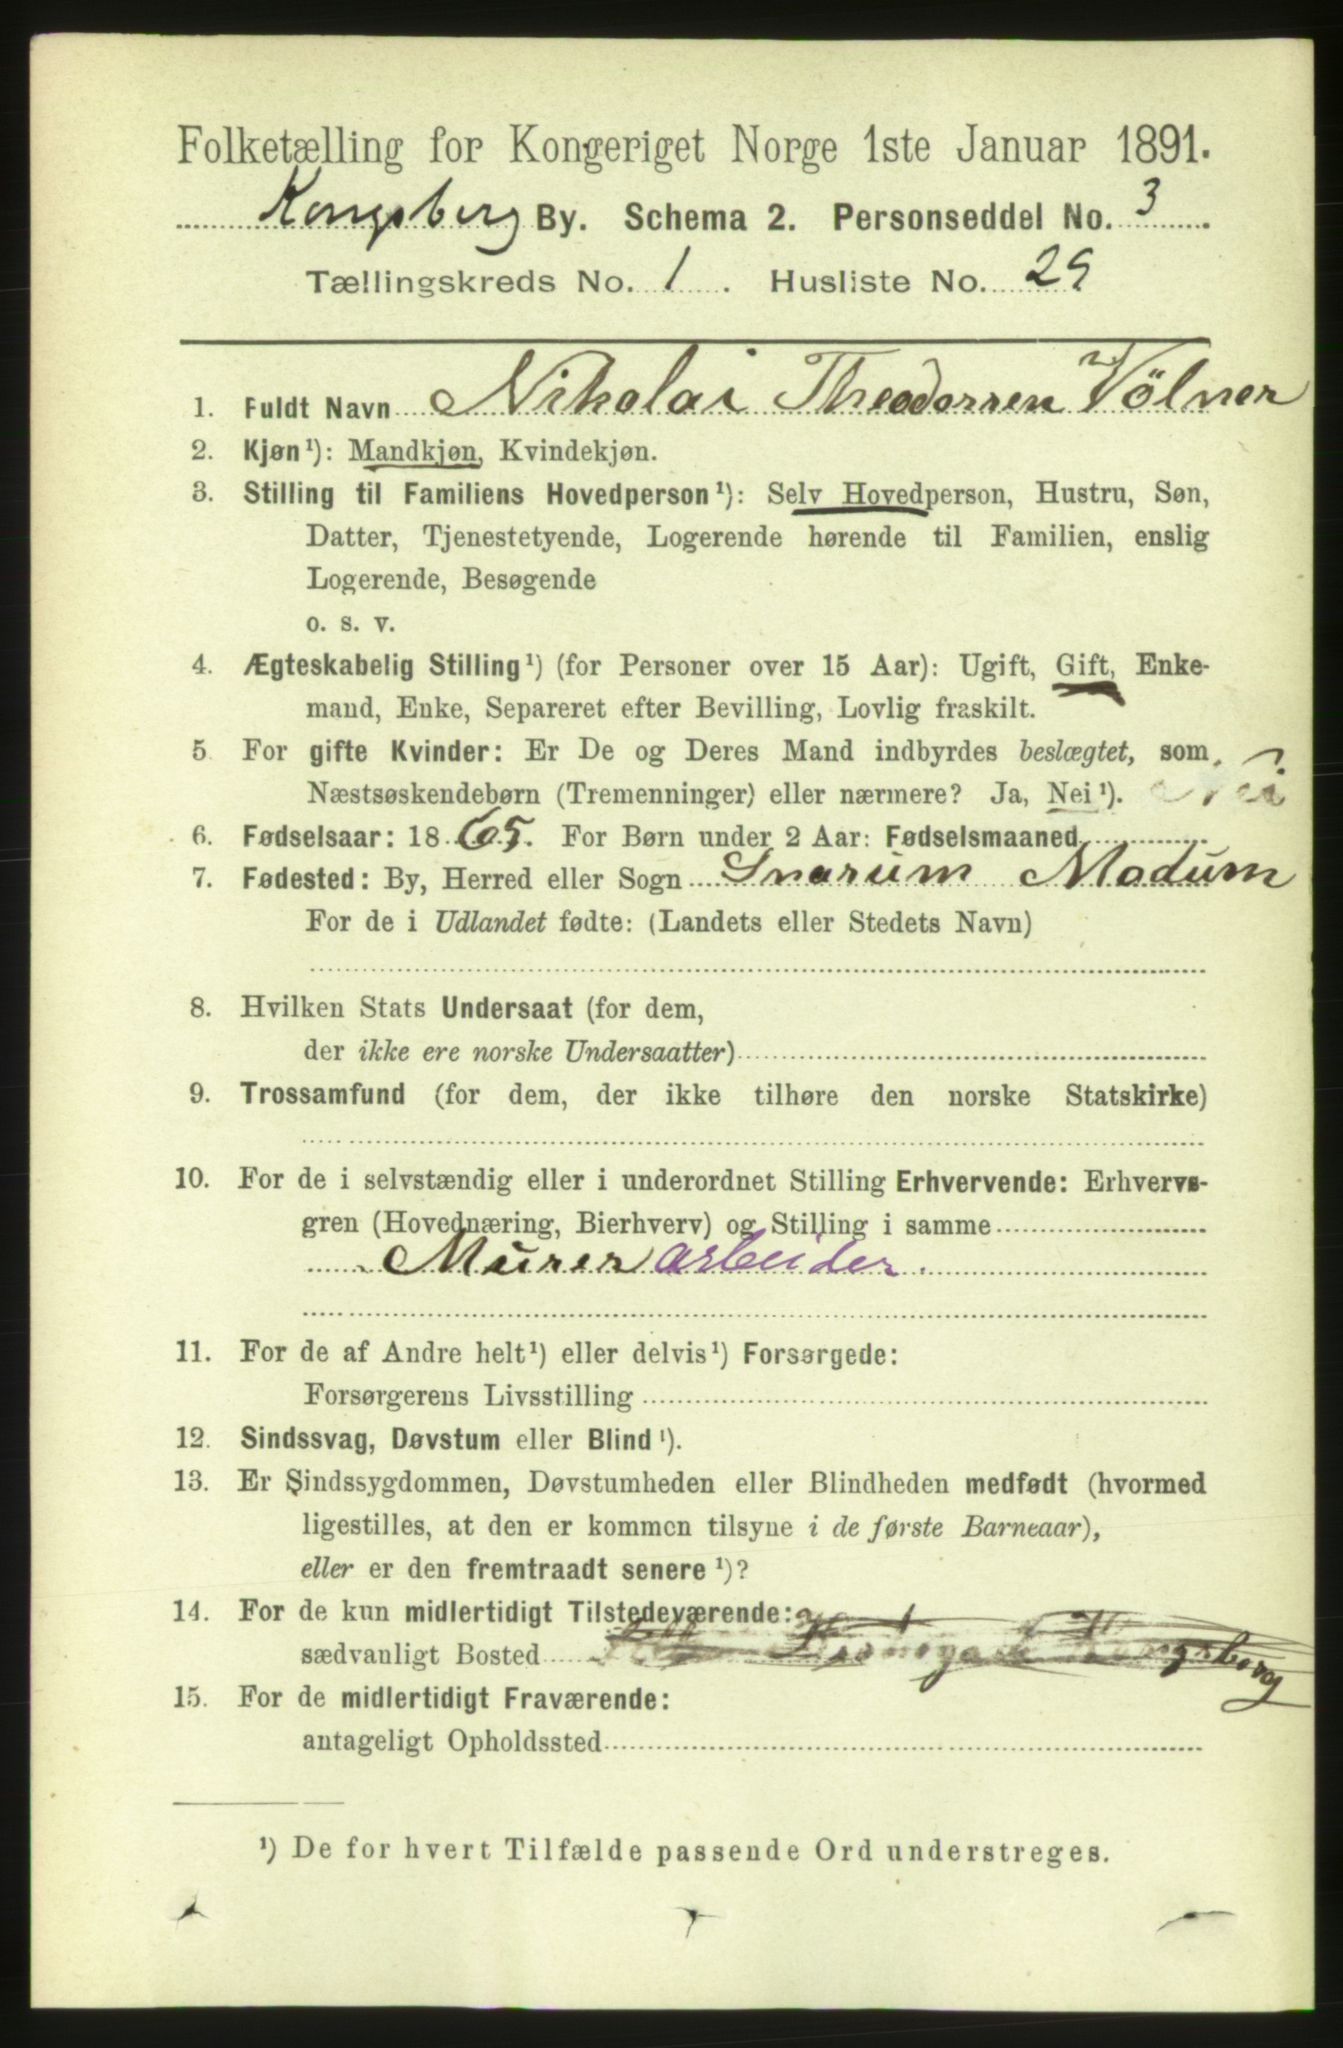 Folketælling for Kongeriget Norge 1ste Januar 1891.
Kongsberg By. Schema 2. Personseddel No. 3
Tællingskreds No. 1. Husliste No. 29
1. Fuldt Navn Nikolai Theodorsen Völner
2. Kjøn¹): Mandkjøn, Kvindekjøn.
3. Stilling til Familiens Hovedperson¹): Selv Hovedperson, Hustru, Søn,
Datter, Tjenestetyende, Logerende hørende til Familien, enslig
Logerende, Besøgende
o. s. v.
4. Ægteskabelig Stilling¹) (for Personer over 15 Aar): Ugift, Gift, Enke-
mand, Enke, Separeret efter Bevilling, Lovlig fraskilt.
5. For gifte Kvinder: Er De og Deres Mand indbyrdes beslægtet, som
Næstsøskendebørn (Tremenninger) eller nærmere? Ja, Nei¹). Nei
6. Fødselsaar: 1865. For Børn under 2 Aar: Fødselsmaaned
7. Fødested: By, Herred eller Sogn Snarum Modum
For de i Udlandet fødte: (Landets eller Stedets Navn)
8. Hvilken Stats Undersaat (for dem,
der ikke ere norske Undersaatter)
9. Trossamfund (for dem, der ikke tilhøre den norske Statskirke)
10. For de i selvstændig eller i underordnet Stilling Erhvervende: Erhvervs-
gren (Hovednæring, Bierhverv) og Stilling i samme
Murerarbeider.
11. For de af Andre helt¹) eller delvis¹) Forsørgede:
Forsørgerens Livsstilling
12. Sindssvag, Døvstum eller Blind¹).
13. Er Sindssygdommen, Døvstumheden eller Blindheden medfødt (hvormed
ligestilles, at den er kommen tilsyne i de første Barneaar),
eller er den fremtraadt senere¹)?
14. For de kun midlertidigt Tilstedeværende:
sædvanligt Bosted Kongsberg
15. For de midlertidigt Fraværende:
antageligt Opholdssted
¹) De for hvert Tilfælde passende Ord understreges.